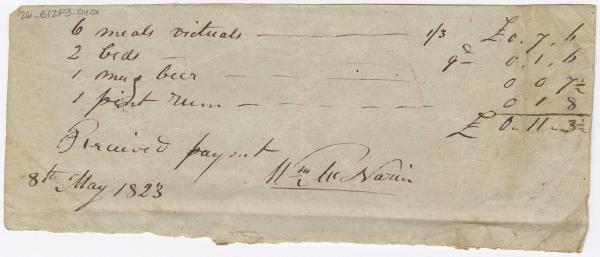 26-B12F3-010
6 meals victuals — 1/3 £ 0, 7, 6
2 beds — 9d 0, 1, 6
1 mug beer — 0 0 7½
1 pint rum — 0 1 8
£ 0 11 3½
Received payent
8th May 1823 Wm Mc